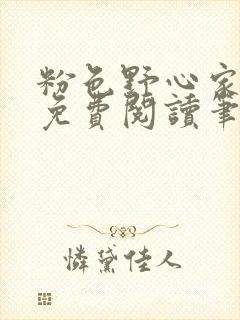 粉色野心家
免費閱讀筆
憐黛佳人